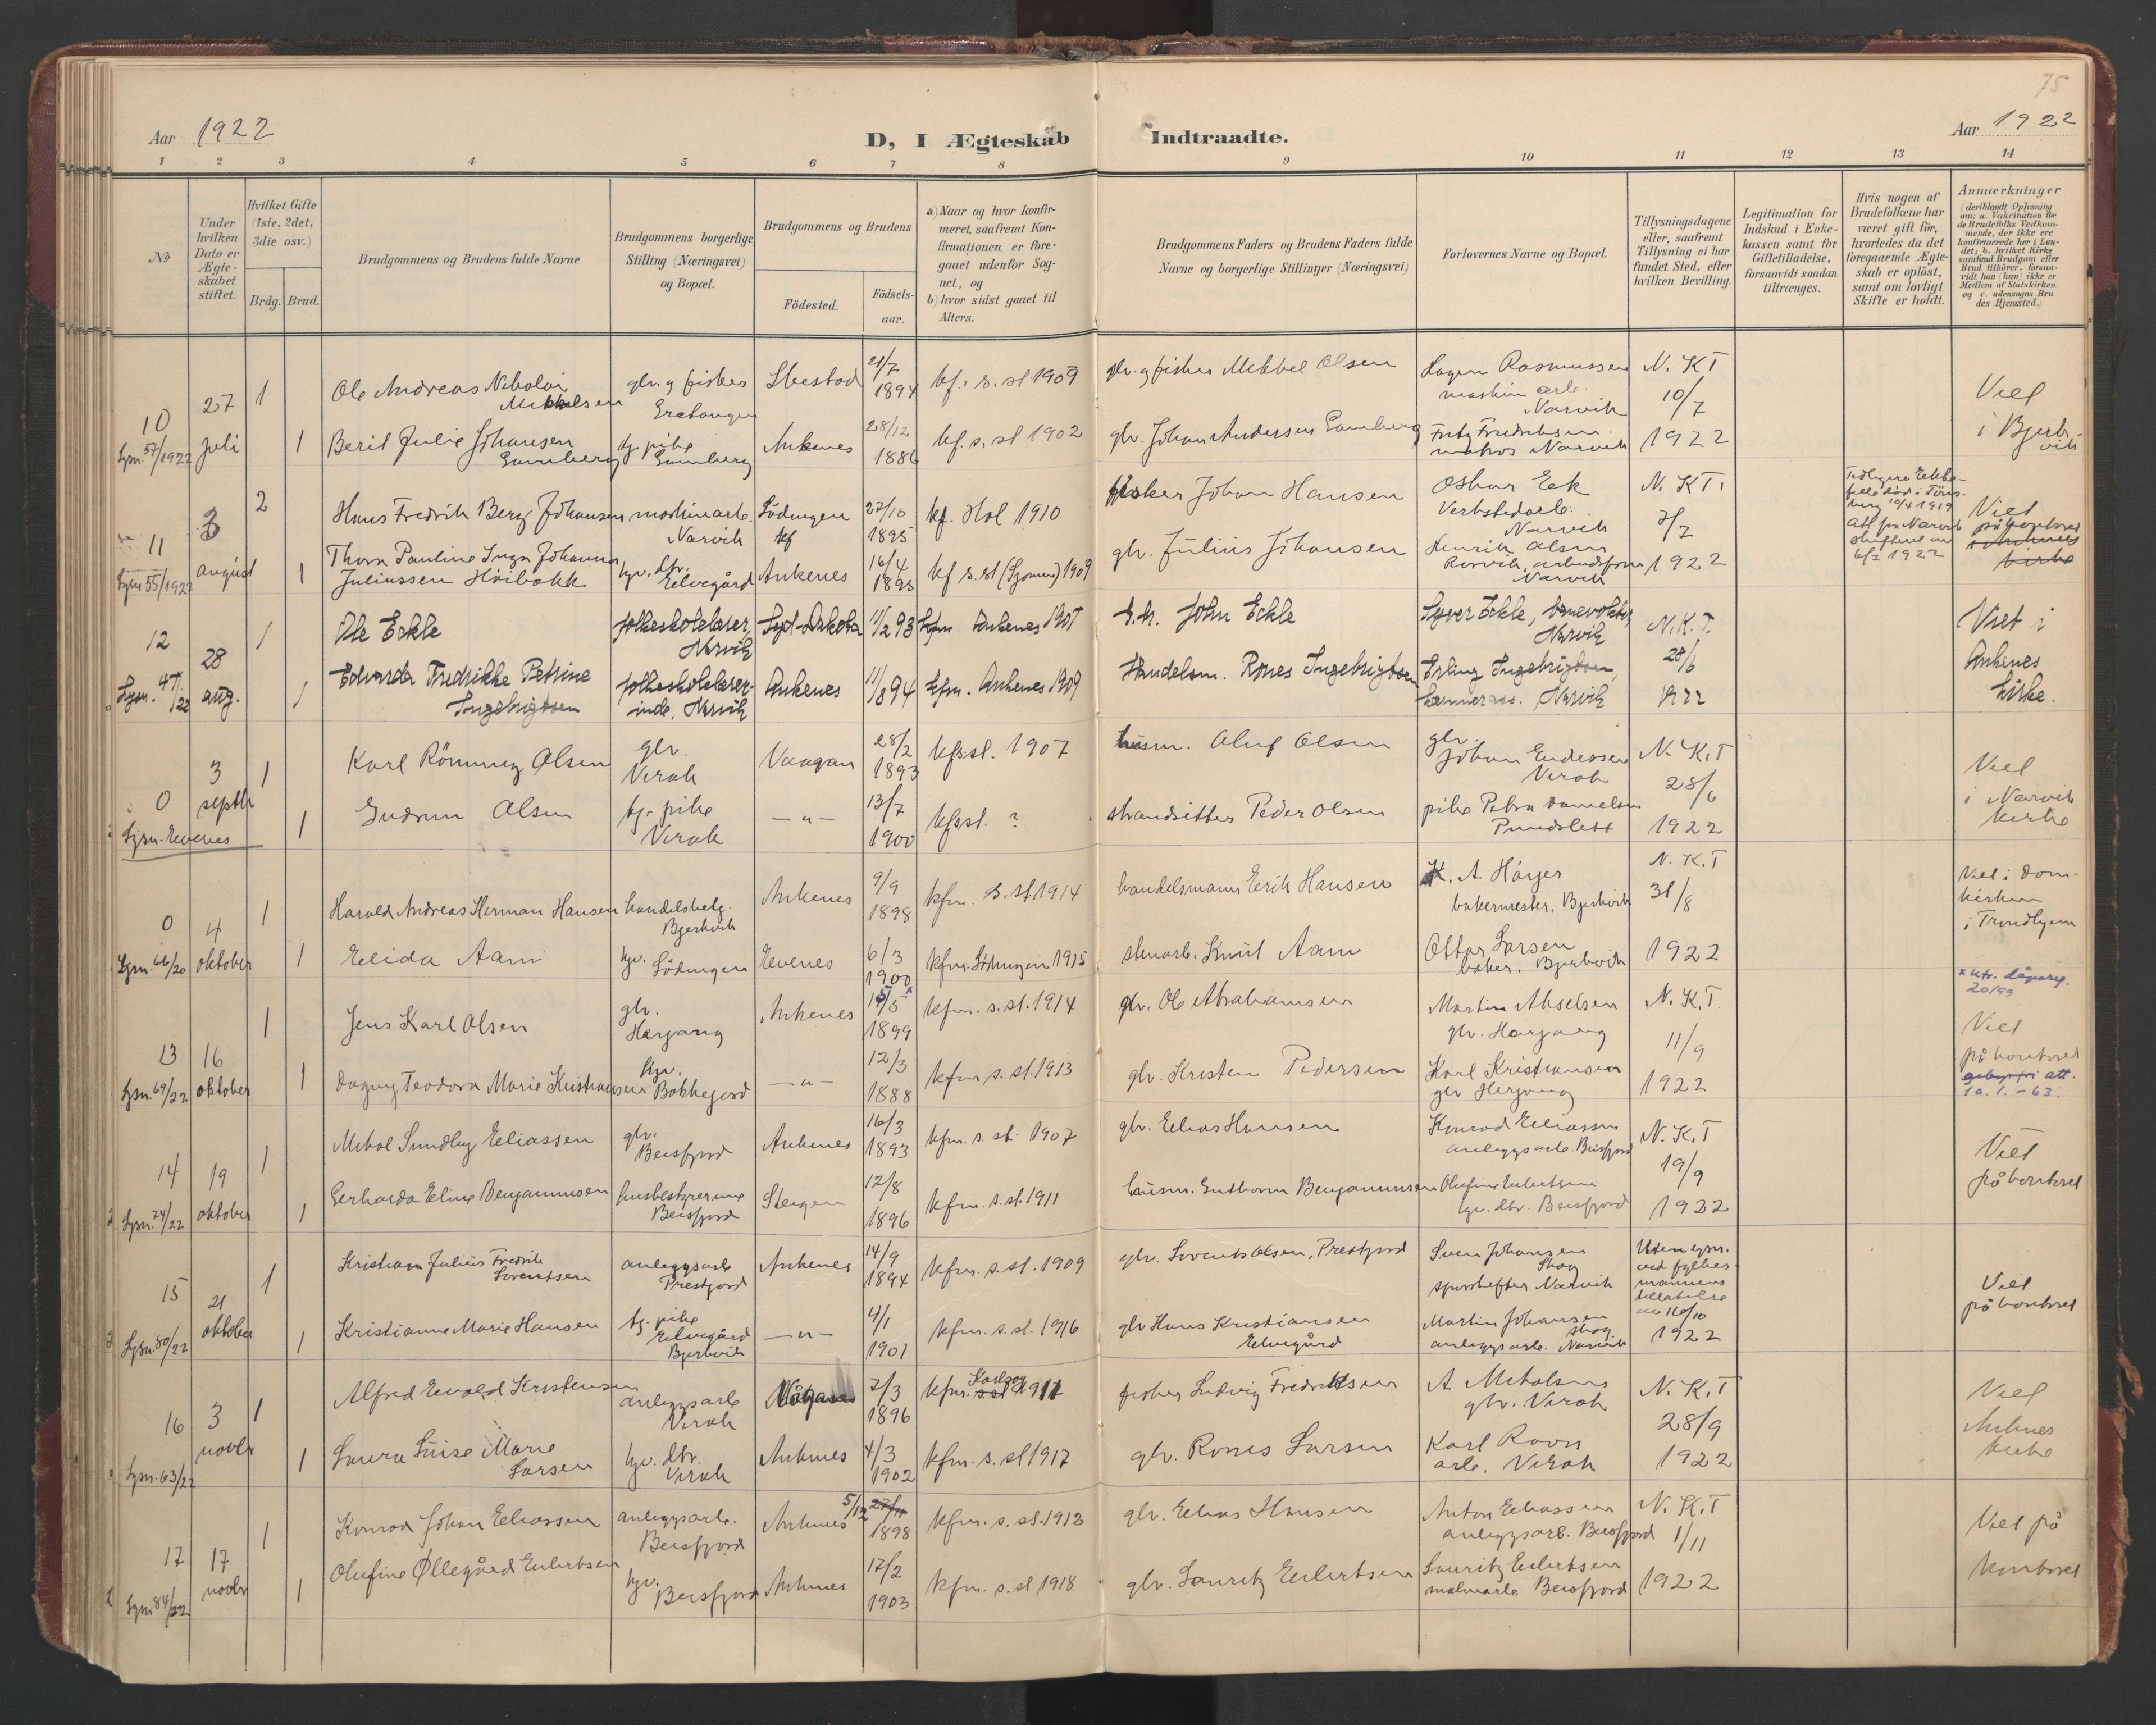 75
Aar 1922
D, I Ægteskab Indtraadte.
Aar 1922
1 2 3 4 5 6 7 8 9 10 11 12 13 14
No
Under hvilken Dato er Ægte-skabet stiftet.
Hvilket Gifte (1ste, 2det, 3die osv.)
Brdg. Brud.
Brudgommens og Brudens fulde Navne
Brudgommens borgerlige Stilling (Næringsvei) og Bopæl.
Brudgommens og Brudens
Födested.
Födsels-aar.
a) Naar og hvor konfir-meret, saafremt Kon-firmationen er fore-gaaet udenfor Sog-net, og
b) hvor sidst gaaet til Alters.
Brudgommens Faders og Brudens Faders fulde Navne og borgerlige Stillinger (Næringsvei)
Forlovernes Navne og Bopæl.
Tillysningsdagene eller, saafremt Tillysning ei har fundet Sted, efter hvilken Bevilling.
Legitimation for Indskud i Enke-kassen samt for Giftetilladelse, forsaavidt saadan tiltrænges.
Hvis nogen af Brudefolkene har været gift för, hvorledes da det foregaaende Ægte-skab er oplöst, samt om lovligt Skifte er holdt.
Anmærkninger
(deriblandt Oplysning om: a. Vakcination för de Brudefolks Vedkom-mende, der ikke ere konfirmerede her i Lan-det; b. hvilket Kirke-samfund Brudgom eller Brud tilhörer, forsaa-vidt han (hun) ikke er Medlem af Statskirken. og c. udensogns Bru-des Hjemsted.)
10
27 juli
1
Ole Andreas Nikolai Mikkelsen
gbr. og fisker
Ibestad
21/7 1894
kf. s. st 1909
gbr. og fisker Mikkel Olsen
Rasmussen
maskin arb. Narvik
N. K T
10/7
1922
Viet i Bjerkvik
Lysn. 57/1922
1
Berit Julie Johansen
tj. pike
Ankenes
28/12 1886
kf. s. st 1902
gbr. Johan Andersen
Fritz Fredriksen
Narvik
11
3 august
2
Hans Fredrik Berg Johansen
maskinarb. Narvik
Lödingen
27/10 1895
kf. Hol 1910
fisker Johan Hansen
Oskar Eek
Verkstedarb. Narvik
N. K T.
7/7
1922
Viet på kontoret
Lysn 55/1922
1
Thora Pauline Inga Johanna Juliussen Höibakk
gbr. dtr. Elvegård
Ankenes
16/4 1895
kf s. st 1909
gbr. Julius Johansen
Henrik Olsen
Narvik
12
28 aug.
1
Ole Eckle
folkeskolelærer, Narvik
Syd-Dakota
11/2 93
kfm. Ankenes 1907
John Eckle
Syver Eckle, Narvik
N. K. T.
28/6
1922
Viet i Ankenes kirke.
Lysn. 47/22
1
Edvarda Fredrikke Petrine Ingebrigtsen
folkeskolelærer-inde, Narvik
Ankenes
11/8 94
kfm. Ankenes 1909
Handelsm. Rones Ingebrigtsen
Erling Ingebrigtsen, Narvik
0
3 septbr
1
Karl Rönning Olsen
gbr. Virak
Vaagan
28/2 1893
kfs.st. 1907
husm. Oluf Olsen
gbr. Johan
Virak
N. K. T
28/6
1922
Viet i Narvik kirke
Lysn. Evenes
1
Gudrun Olsen
tj. pike Virak
— " —
13/7 1900
kfsst. ?
strandsitter Peder Olsen
pike Petra Danielsen
Pundslett
0
4 oktober
1
Harald Andreas Herman Hansen
handelsbetj. Bjerkvik
Ankenes
9/9 1898
kfm. s. st. 1914
handelsmann Eerik Hansen
K. A
bakermester, Bjerkvik
N. K. T
31/8
1922
Viet i Dom-kirken i Trondhjem
Lysn. 66/20
1
Elida Aam
Lödingen
Evenes
6/3 1900
kfm. Lödingen 1915
stenarb. Knut Aam
Ottar Larsen
baker. Bjerkvik
13
16 oktober
1
Jens Karl Olsen
gbr. Herjang
Ankenes
15/5 x 1899
kfm. s. st. 1914
gbr. Ole Abrahamsen
Martin Akselsen
gbr. Herjang
N. K. T.
11/9
1922
Viet på kontoret
att. 10.1.-63.
Lysn. 69/22
1
Dagny Teodora Marie Kristiansen
— " —
12/3 1888
kfm s. st. 1913
gbr. Kristen Pedersen
Karl Kristiansen
gbr Herjang
14
19 oktober
1
Mikal Sundby Eliassen
gbr. Beisfjord
Ankenes
16/3 1893
kfm. s. st. 1907
gbr. Elias Hansen
Konrad Eliassen
anleggsarb. Beisfjord
N. K. T
19/9
1922
Viet på kontoret
Lysn. 74/22
1
Gerharda Eline Benjaminsen
husbestyrerinne Beisfjord
Steigen
12/8 1896
kfm. s. st. 1911
husm. Guttorm Benjaminsen
Olufine Eilertsen
gbr. dtr. Beisfjord
15
21 oktober
1
Kristian Julius Fredrik Lorentsen
anleggsarb Prestjord
Ankenes
14/9 1894
kfm. s. st. 1909
gbr. Lorents Olsen, Prestjord
Sven Johansen Skog
Narvik
Uten lysn. ved fylkes-mannens tillatelse av 16/10 1922
Viet på kontoret
Lysn. 80/22
1
Kristianne Marie Hansen
tj. pike Elvegård Bjerkvik
— " —
4/1 1901
kfm. s. st. 1916
gbr Hans Kristiansen Elvegård
Martin Johansen Skog
anleggsarb. Narvik
16
3 novbr
1
Alfred Evald Kristensen
anleggsarb Virak
Vågan
7/3 1896
kfm. Karlsøy 1911
fisker Ludvig Fredriksen
A Mikalsen
gbr. Virak
N. K. T
28/9
1922
Viet Ankenes kirke
Lysn. 63/22
1
Laura Luise Marie Larsen
gbr. dtr. Virak
Ankenes
4/3 1902
kfm. s. st 1917
gbr. Rones Larsen
Karl Ravn
arb. Virak
17
17 novbr
1
Konrad Johan Eliassen
anleggsarb. Beisfjord
Ankenes
5/12 1898
kfm. s. st. 1912
gbr. Elias Hansen
Anton Eliassen
anleggsarb. Beisfjord
N. K. T
1/11
1922
Viet på kontoret
Lysn 84/22
1
Olufine Øllegård Eilertsen
Beisfjord
Ankenes
17/2 1903
kfm. s. st 1918
gbr. Lauritz Eilertsen
Lauritz Eilertsen
malmarb. Beisfjord